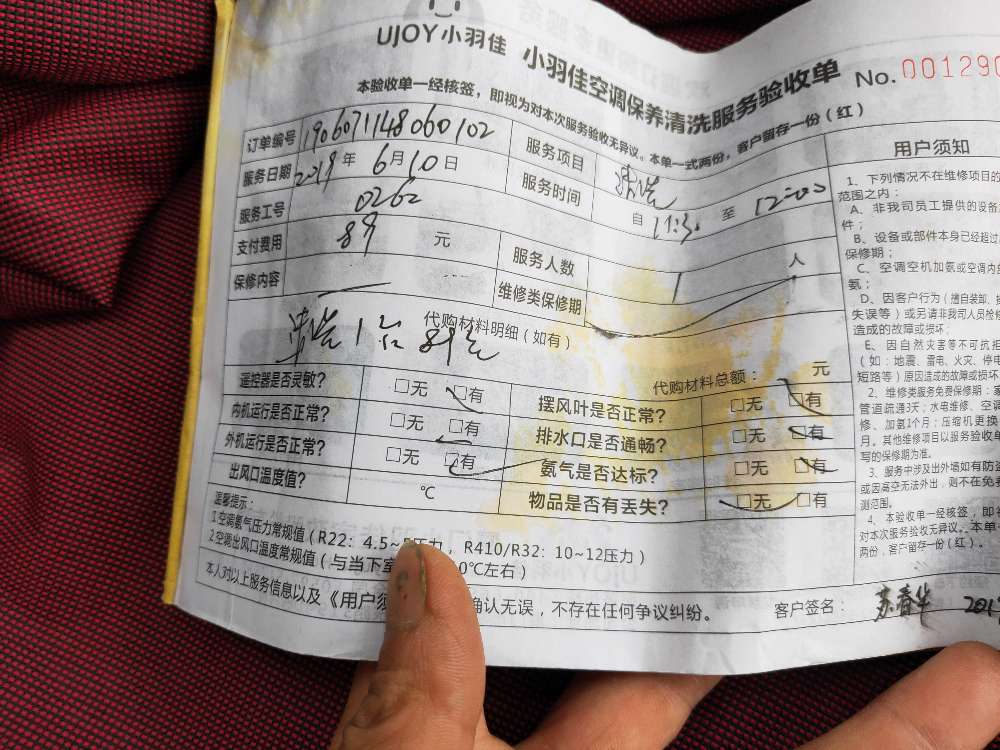 UJOY小羽佳 小羽佳空调保养清洗服务验收单 No. 001290
本验收单一经核签，即视为对本次服务验收无异议。本单一式两份，客户留存一份（红）
订单编号 1906071148060102 服务项目 清洗
服务日期 2019 年 6 月 10 日 服务时间 自 11:30 至 12:00
服务工号 0262
支付费用 89 元 服务人数 1 人
保修内容 维修类保修期
代购材料明细（如有）
清洗1台
代购材料总额： 元
遥控器是否灵敏？ □无 □有 摆风叶是否正常？ □无 □有
内机运行是否正常？ □无 □有 排水口是否通畅？ □无 □有
外机运行是否正常？ □无 □有 氨气是否达标？ □无 □有
出风口温度值？ ℃ 物品是否有丢失？ □无 □有
温馨提示：
1.空调氨气压力常规值（R22：4.5~ 压力，R410/R32：10~12压力）
2.空调出风口温度常规值（与当下室 0℃左右）
本人对以上服务信息以及《用户须 确认无误，不存在任何争议纠纷。
客户签名： 苏春华 201
用户须知
1、下列情况不在维修项目的
范围之内：
A、非我司员工提供的设备
件；
B、设备或部件本身已经超过
保修期；
C、空调空机加氨或空调内
氨；
D、因客户行为（擅自装卸、
失误等）或另请非我司人员检修
造成的故障或损坏；
E、因自然灾害等不可抗拒
（如：地震、雷电、火灾、停电
短路等）原因造成的故障或损坏
2、维修类服务免费保修期：
管道疏通3天；水电维修、空调
修、加氨1个月；压缩机更换
月。其他维修项目以服务验收单
写的保修期为准。
3、服务中涉及出外墙如有防盗
或因高空无法外出，则不在免
测范围。
4、本验收单一经核签，即视
对本次服务验收无异议。本单一
两份，客户留存一份（红）。